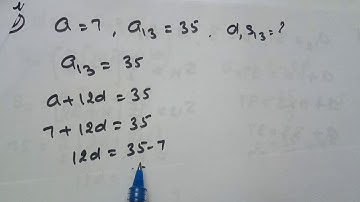 i)
a = 7 , a₁₃ = 35 . d, S₁₃ = ?
a₁₃ = 35
a + 12d = 35
7 + 12d = 35
12d = 35 - 7